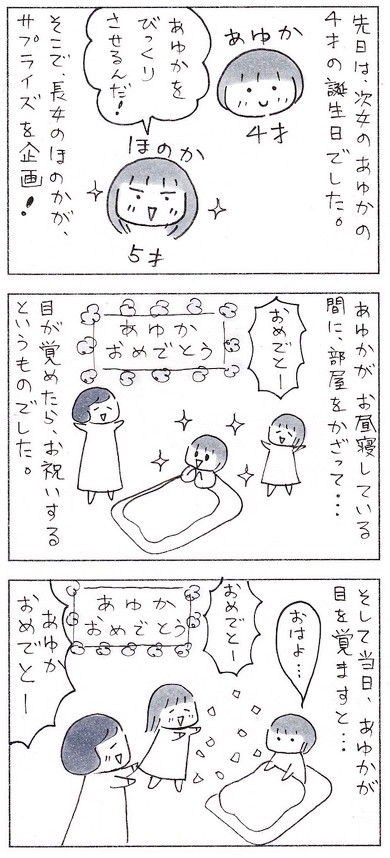 先日は、次女のあゆかの
4才の誕生日でした。
あゆか
4才
あゆかを
びっくり
させるんだ!
ほのか
5才
そこで、長女のほのかが、
サプライズを企画!
あゆかがお昼寝している
間に、部屋をかざって・・・
おめでとー
あゆか
おめでとう
目が覚めたら、お祝いする
というものでした。
そして当日、あゆかが
目を覚ますと・・・
おはよ・・・
おめでとー
あゆか
おめでとう
あゆか
おめでとー